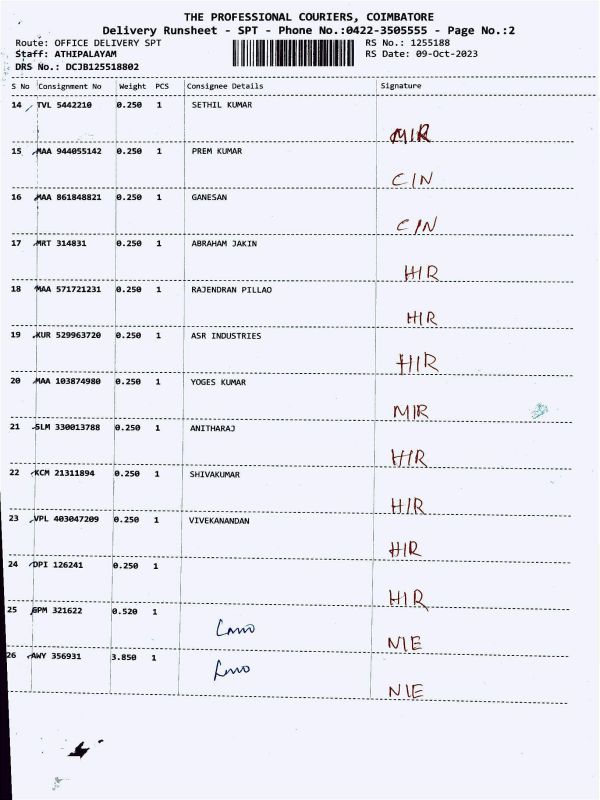 THE PROFESSIONAL COURIERS, COIMBATORE
Delivery Runsheet - SPT - Phone No.:0422-3505555 - Page No.:2
Route: OFFICE DELIVERY SPT RS No.: 1255188
Staff: ATHIPALAYAM RS Date: 09-Oct-2023
DRS No.: DCJB125518802
S No Consignment No Weight PCS Consignee Details Signature
14 TVL 5442210 0.250 1 SETHIL KUMAR
MIR
15 MAA 944055142 0.250 1 PREM KUMAR
CIN
16 MAA 861848821 0.250 1 GANESAN
CIN
17 MRT 314831 0.250 1 ABRAHAM JAKIN
HIR
18 MAA 571721231 0.250 1 RAJENDRAN PILLAO
HIR
19 KUR 529963720 0.250 1 ASR INDUSTRIES
HIR
20 MAA 103874980 0.250 1 YOGES KUMAR
MIR
21 SLM 330013788 0.250 1 ANITHARAJ
HIR
22 KCM 21311894 0.250 1 SHIVAKUMAR
HIR
23 VPL 403047209 0.250 1 VIVEKANANDAN
HIR
24 DPI 126241 0.250 1
HIR
25 GPM 321622 0.520 1
NIE
26 AWY 356931 3.850 1
NIE